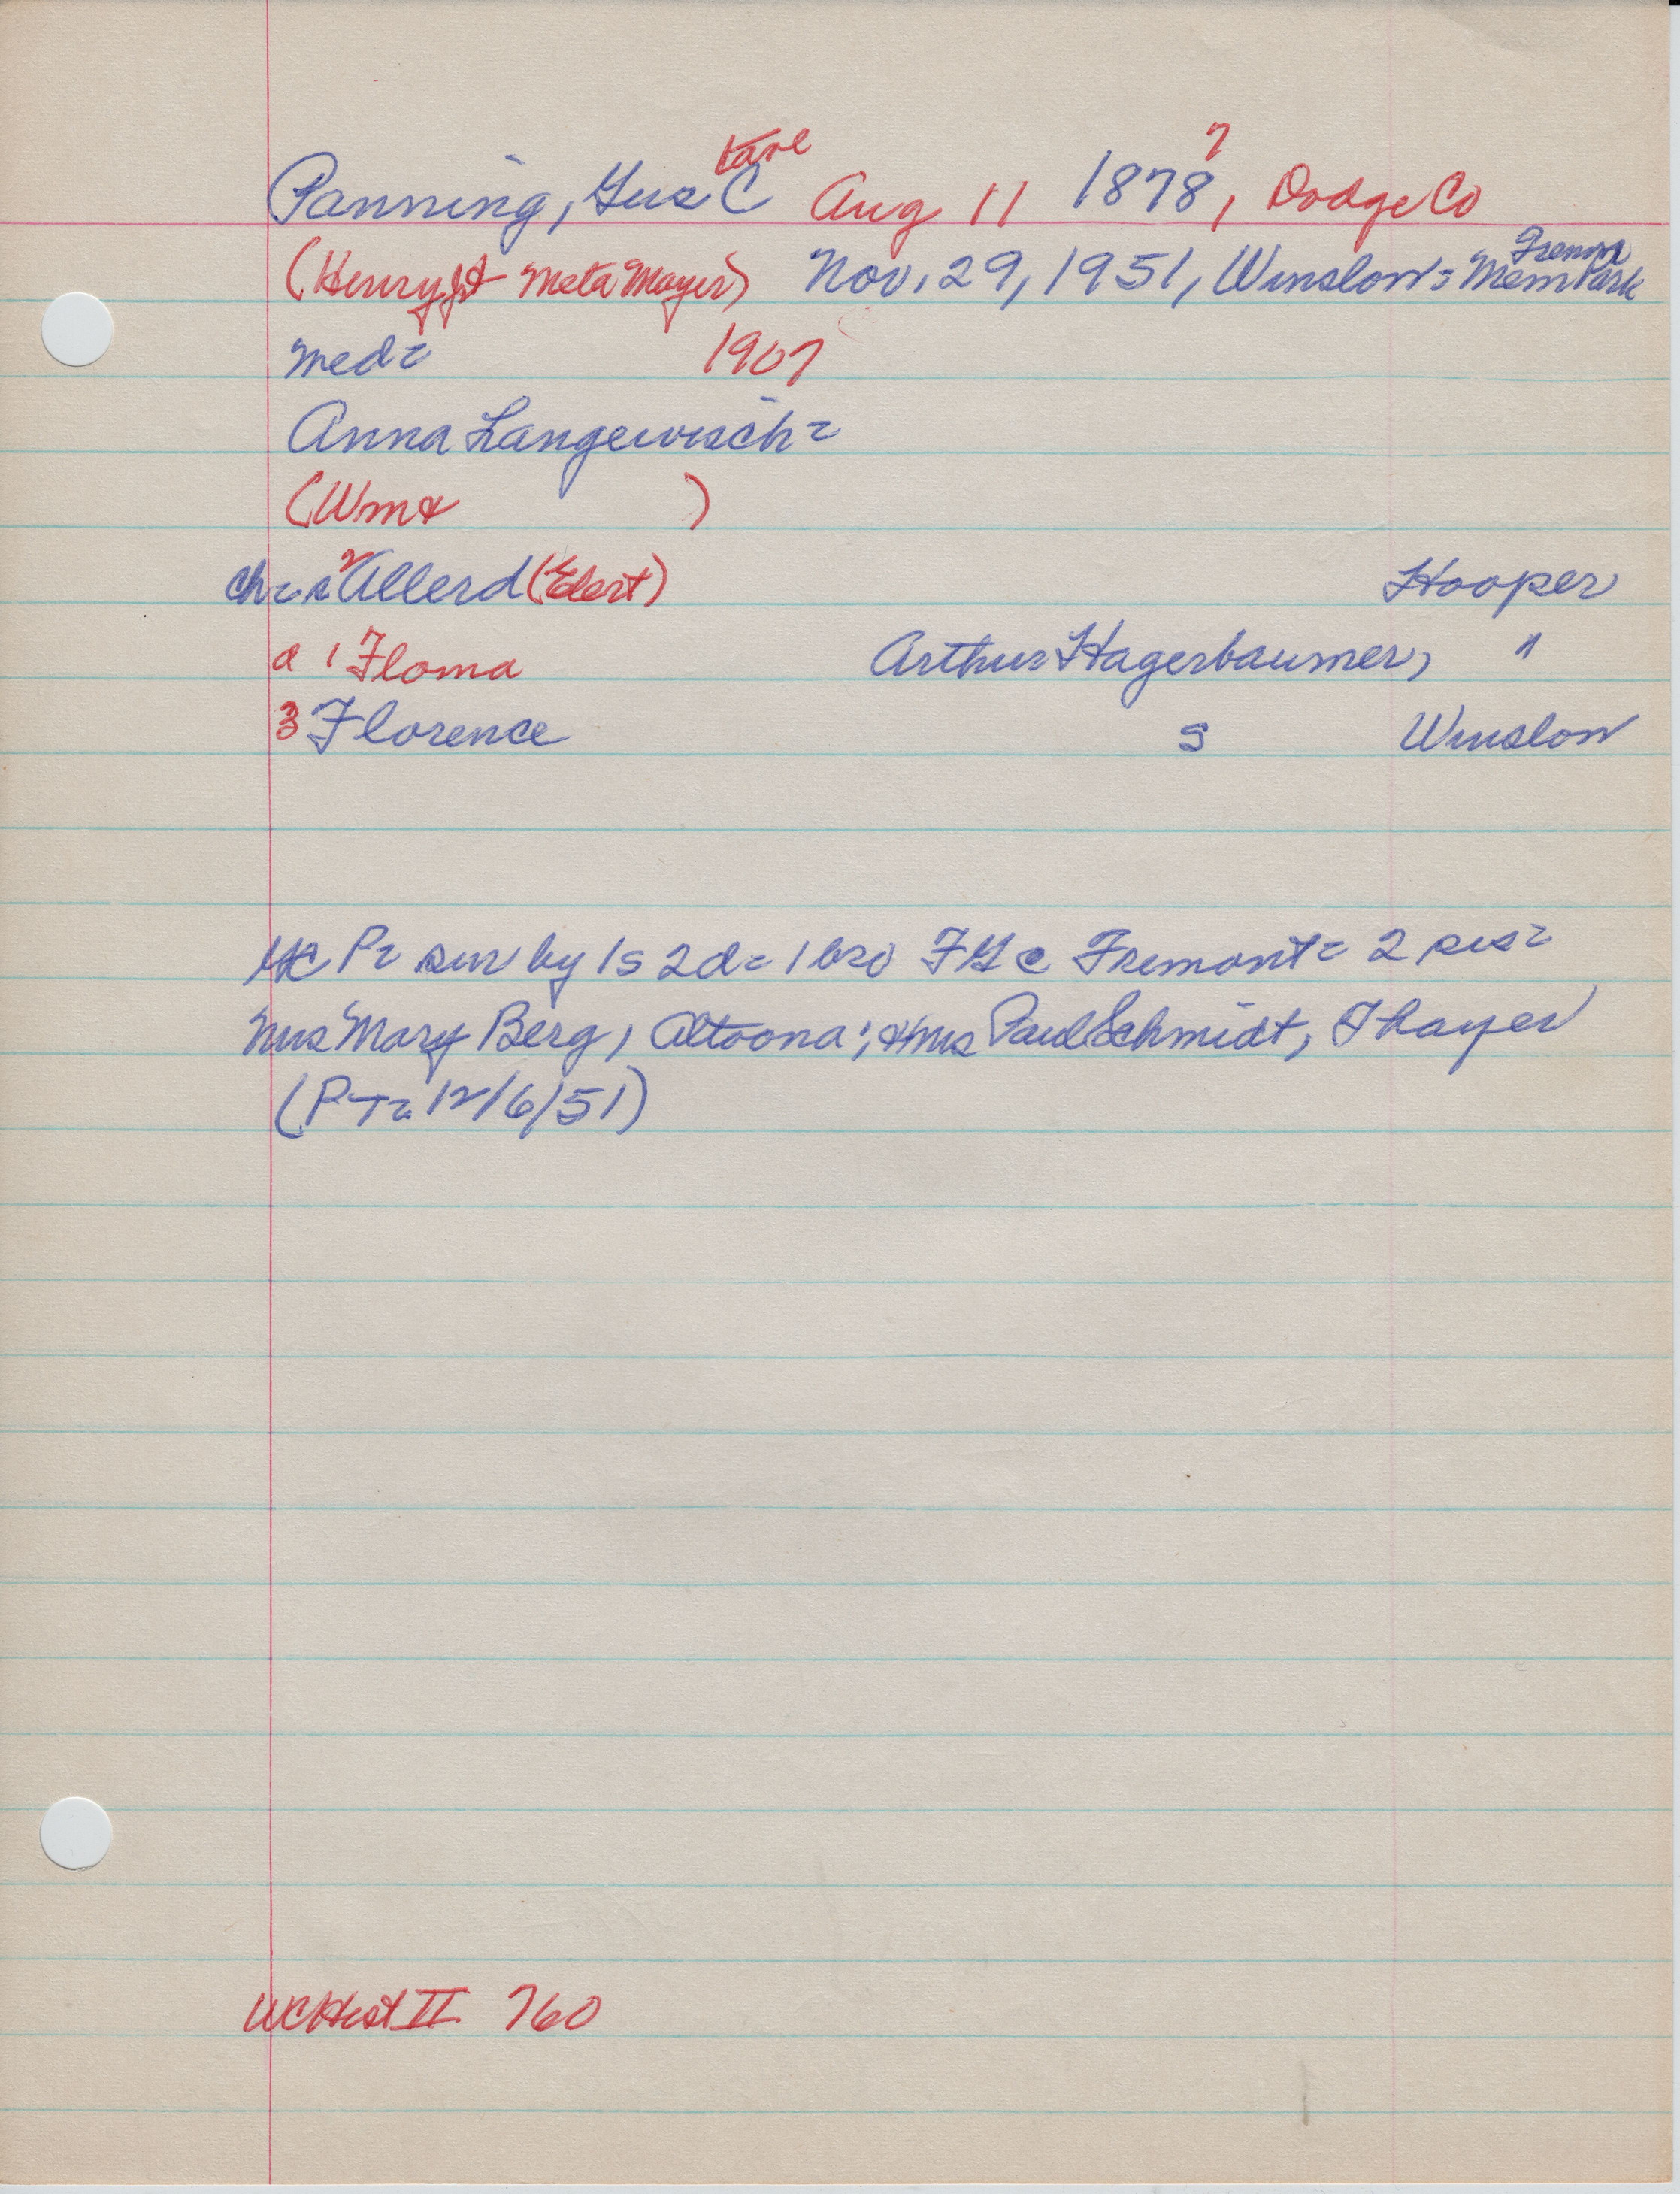 Karl 7
Panning, Gus C Aug 11 1878, Dodge Co
(Henry & Meta Mayer) Nov. 29, 1951, Winslow = Mem Park
med = 1907
Anna Langewisch =
(Wm & )
ch = 2 Allerd (Elert) Hooper
d 1 Floma Arthur Hagerbaumer, "
3 Florence s Winslow
P = sur by 1s 2d = 1 bro FG @ Fremont = 2 sis =
Mrs Mary Berg, Altoona; & Mrs Paul Schmidt, Thayer
(PT = 12/6/51)
WC Hist II 760